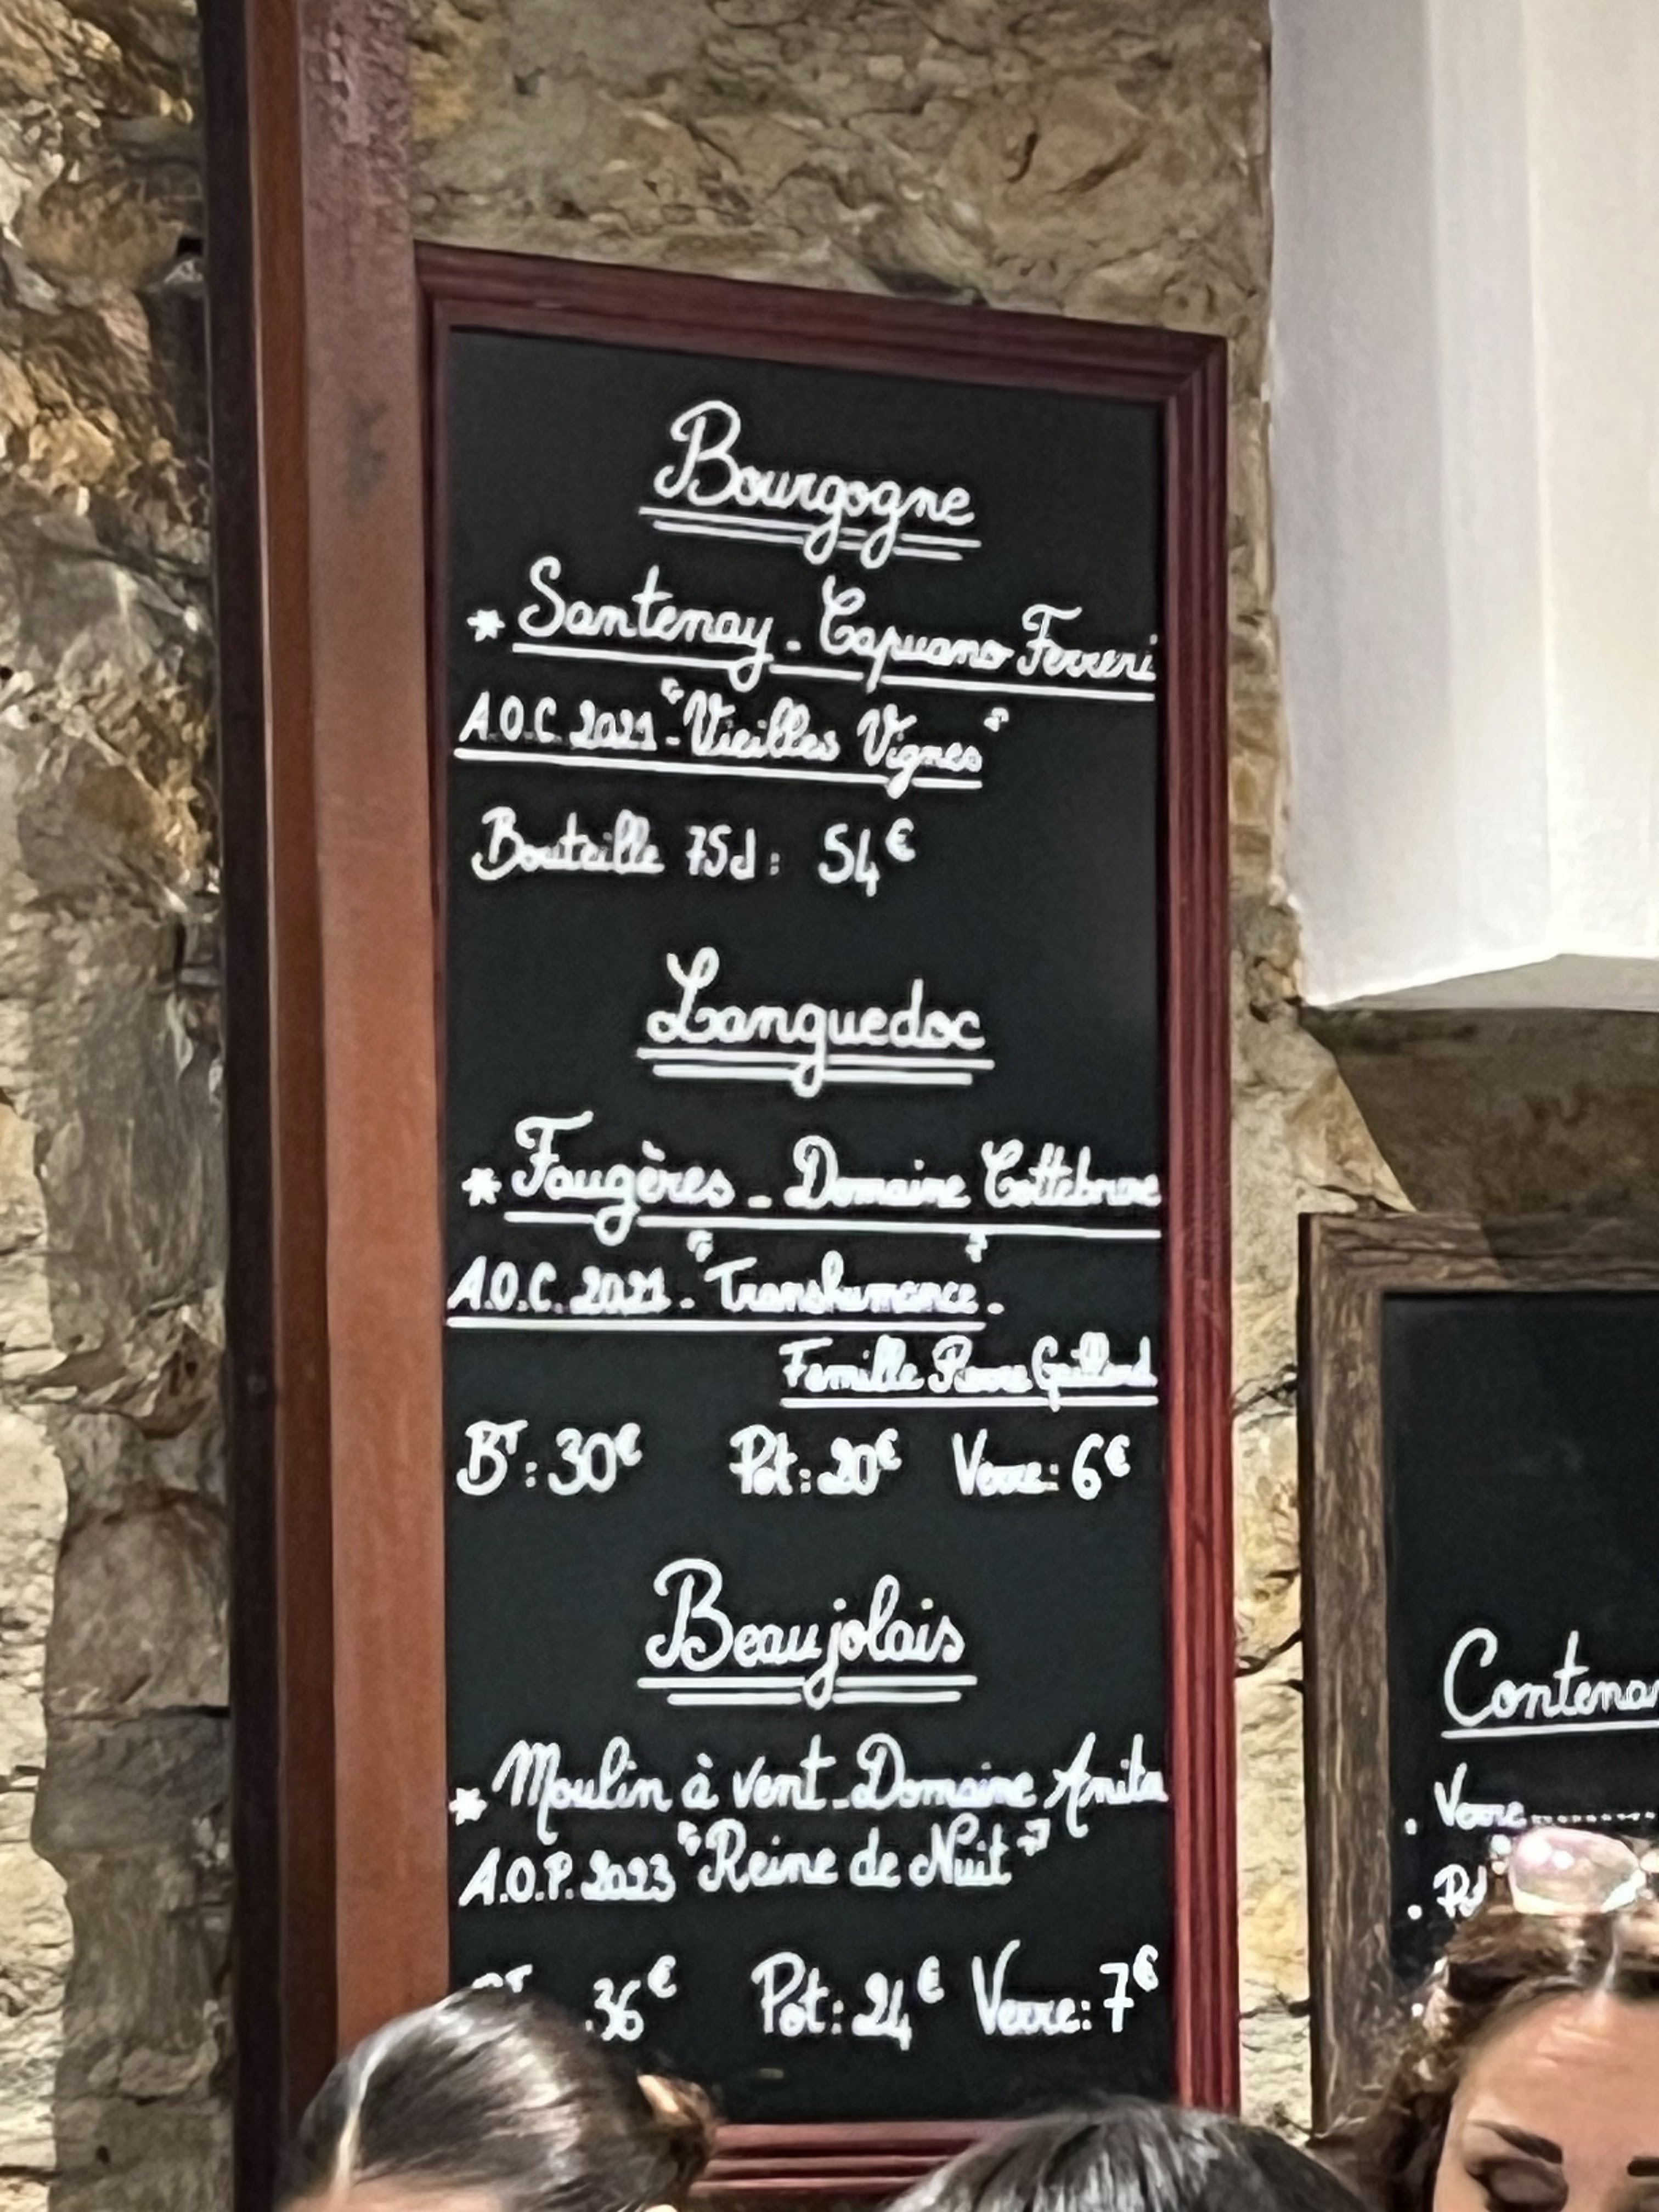 Bourgogne
* Santenay - Capuano Ferreri
A.O.C. 2021 - "Vieilles Vignes"
Bouteille 75cl : 54€
Languedoc
* Faugères - Domaine Cottebrune
A.O.C. 2021 - "Transhumance" -
Famille Pierre Gaillard
BT : 30€ Pot : 20€ Verre : 6€
Beaujolais
* Moulin à vent - Domaine
A.O.P. 2023 "Reine de Nuit"
36€ Pot : 24€ Verre : 7€
Contenan
. Verre